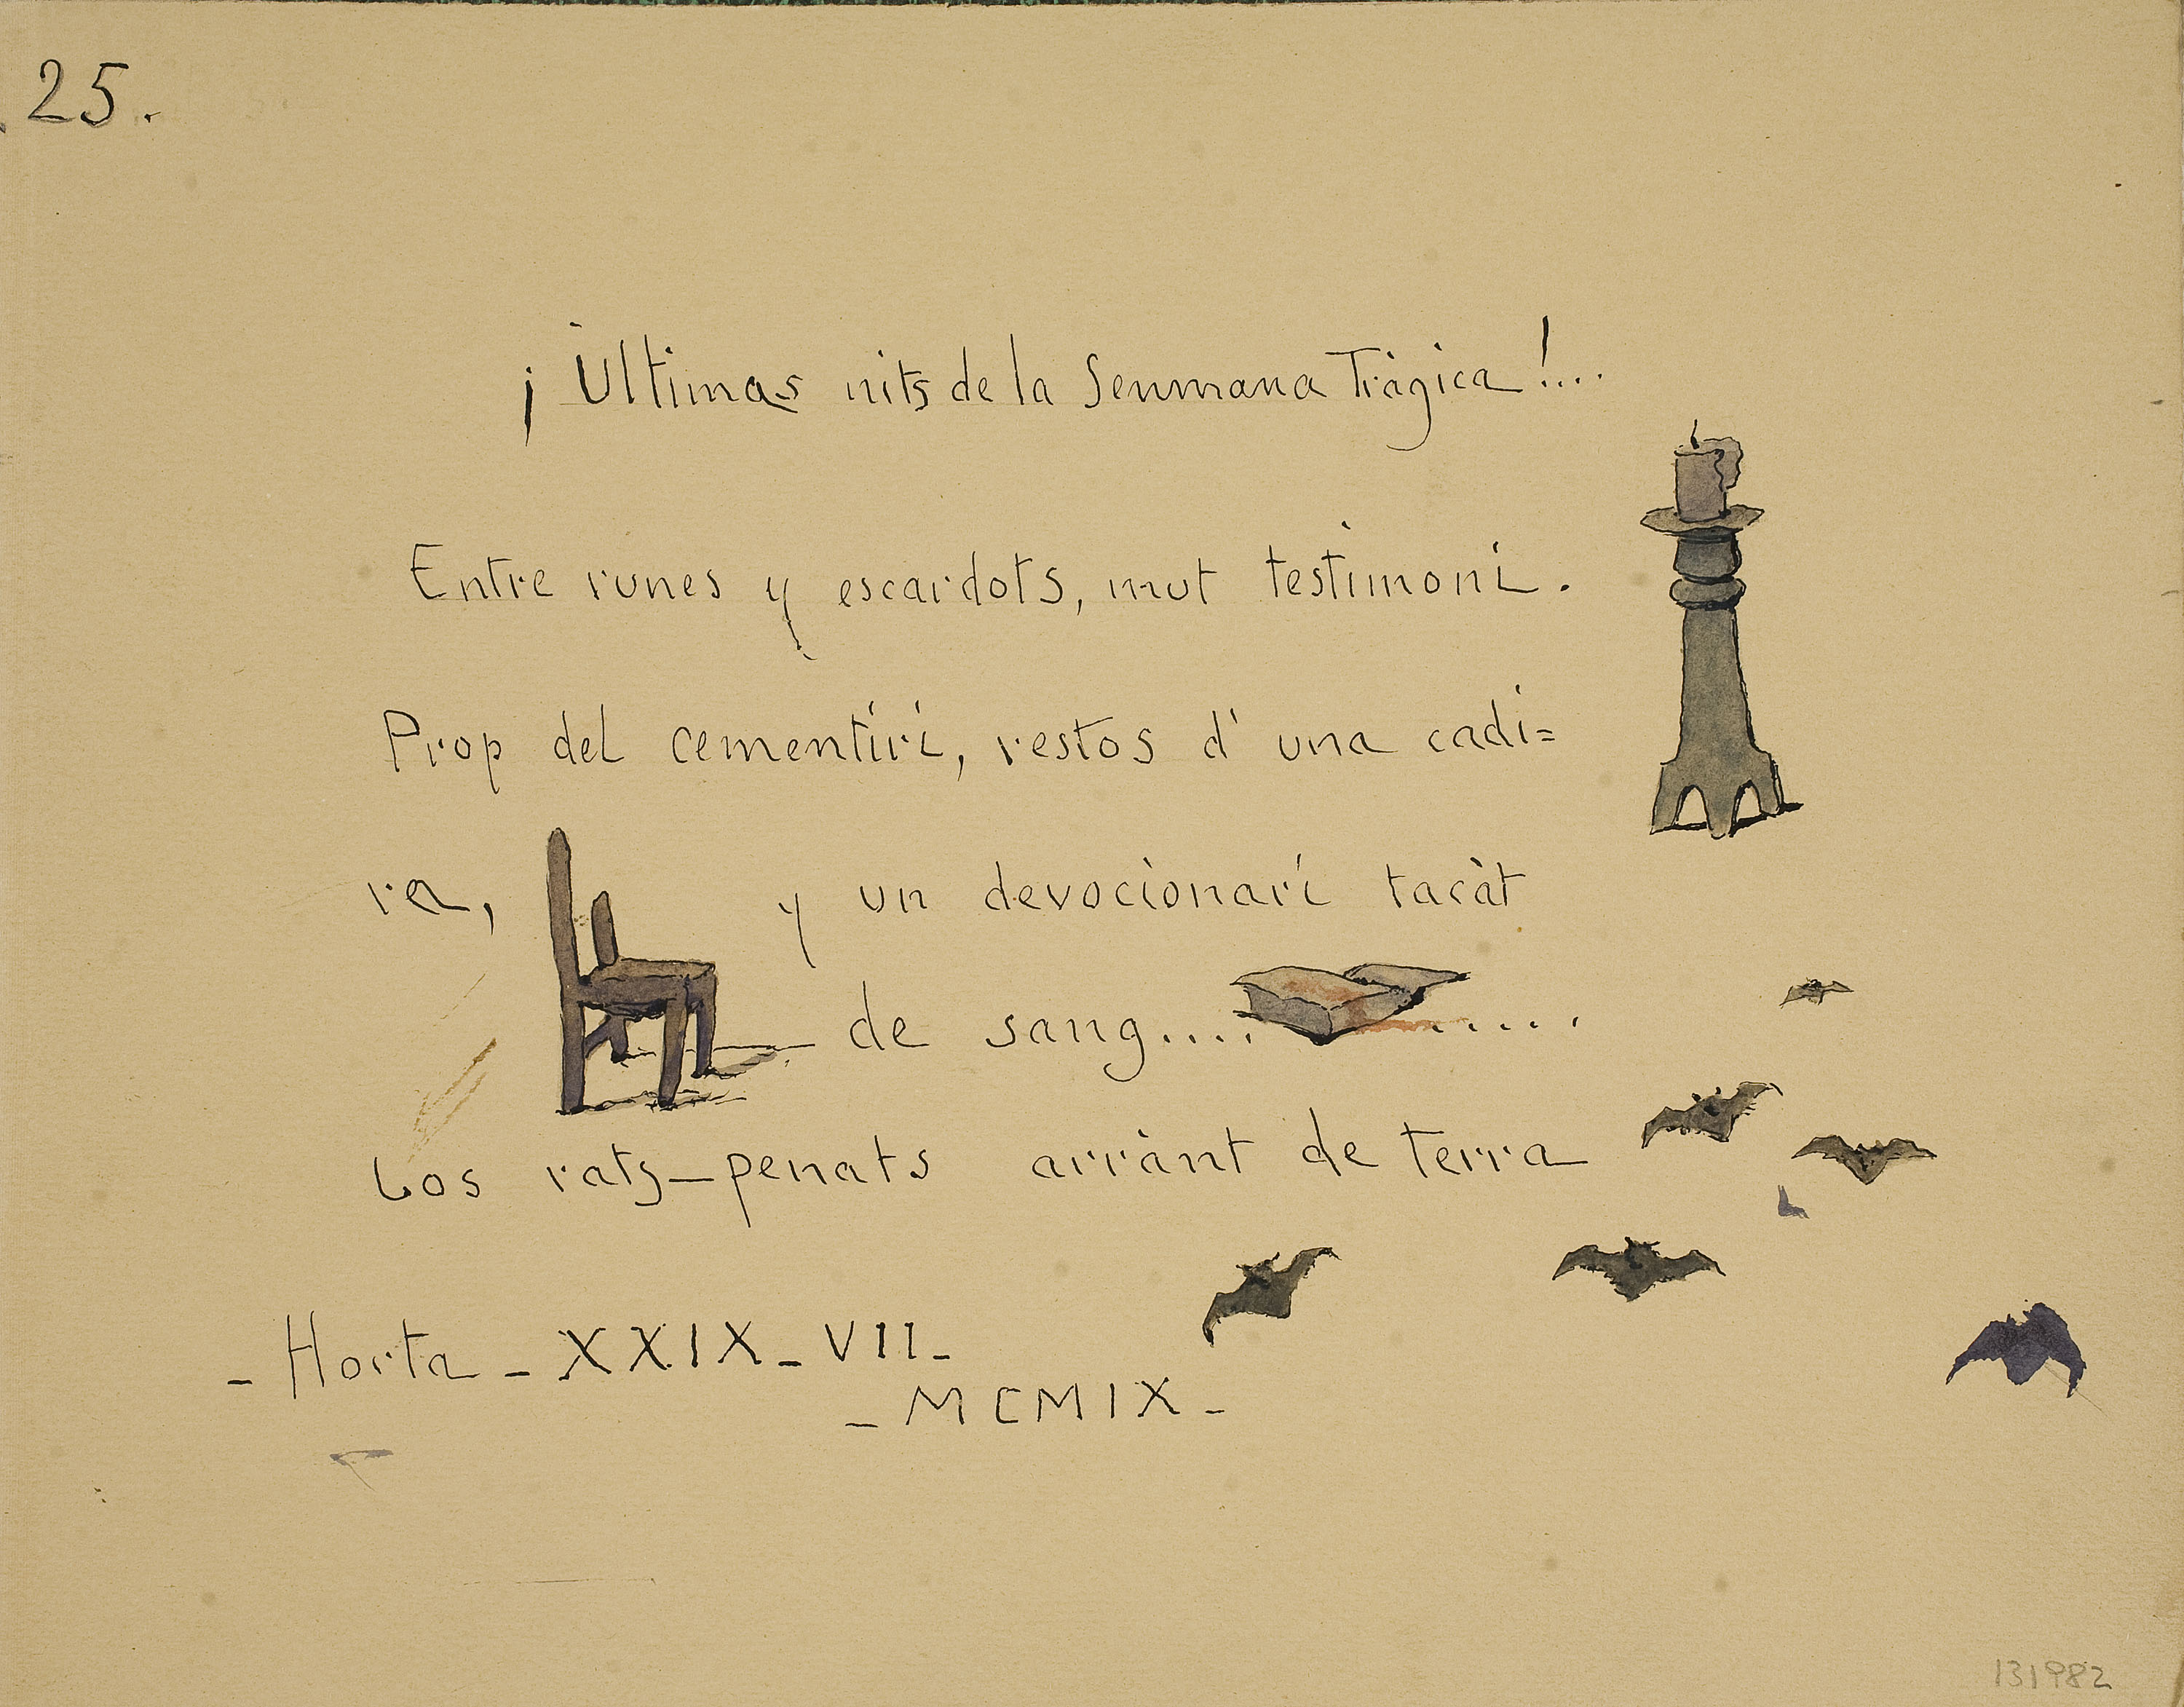 25.
¡Ultimas nits de la Senmana Tràgica!....
Entre runes y escardots, mut testimoni.
Prop del cementiri, restos d'una cadi=
ra, y un devocionari tacàt
de sang.... .....
Los rats-penats arrànt de terra
- Horta - XXIX - VII -
- MCMIX -
131982